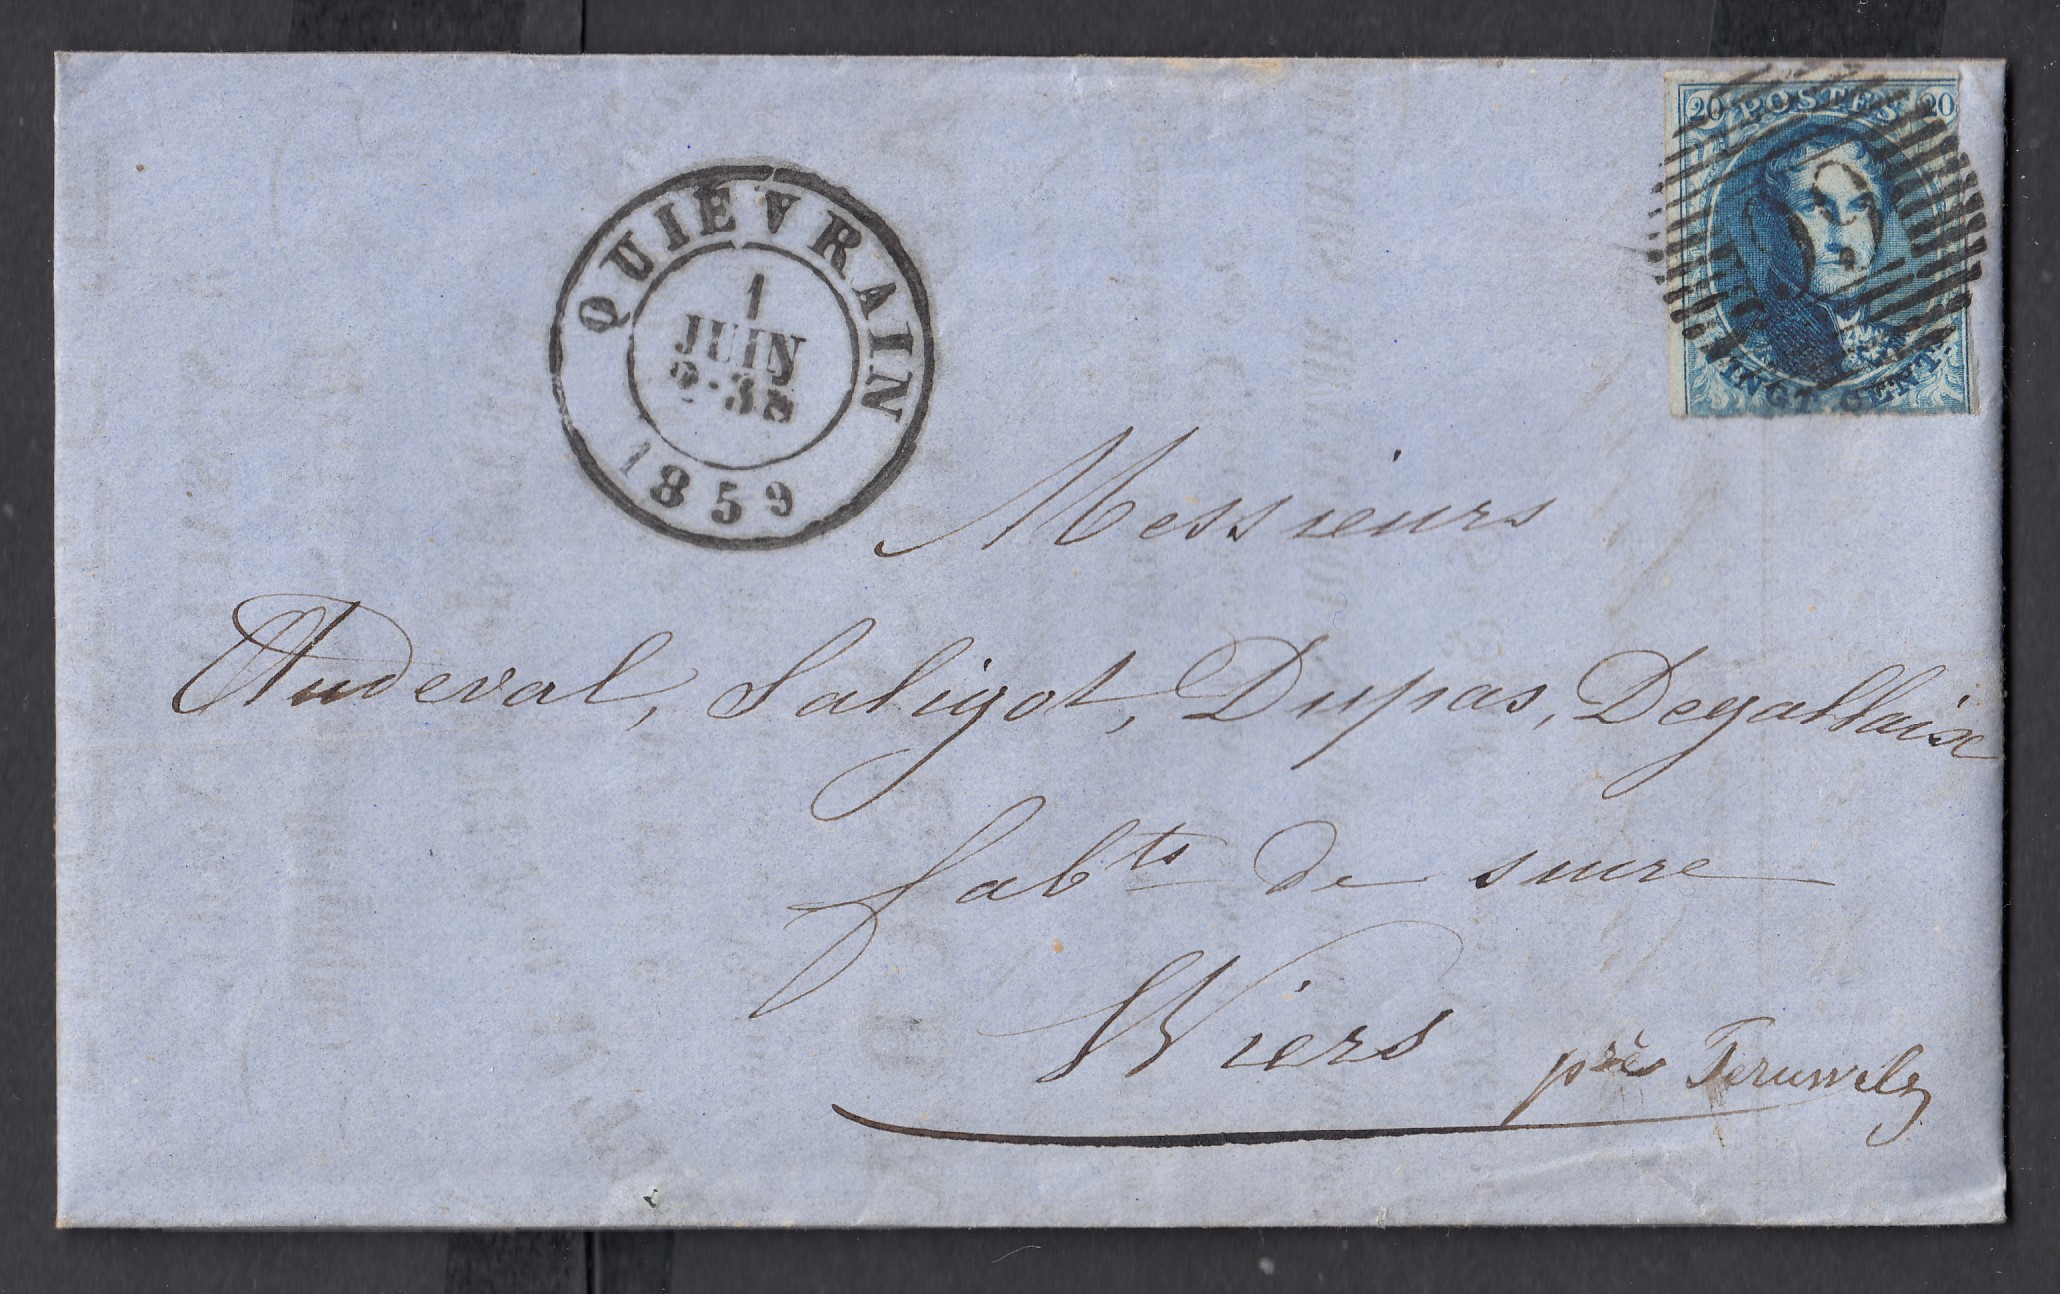 20 POSTES 20
VINGT CENT.
QUIÉVRAIN
1
JUIN
1859
Messieurs
Audeval, Saligot, Dupas, Degallaix
fabts de sucre
Wiers près Peruwelz